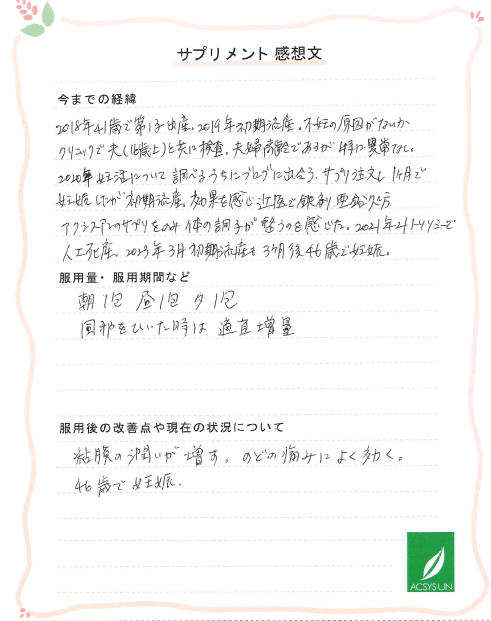 サプリメント 感想文
今までの経緯
2018年41歳で第1子出産。2019年初期流産。不妊の原因がないか
クリニックで夫(16歳上)と共に検査。夫婦高齢であるが特に異常なし。
2020年 妊活について調べるうちにブログに出会う。サプリ注文し1ヶ月で
妊娠したが初期流産。効果を感じ近医で鉄剤 亜鉛処方
アクシスアンのサプリをのみ体の調子が整うのを感じた。2021年21トリソミーで
人工死産。2023年3月初期流産も3ヶ月後46歳で妊娠。
服用量・服用期間など
朝1包 昼1包 夕1包
風邪をひいた時は 適宜増量
服用後の改善点や現在の状況について
粘膜の潤いが増す。のどの痛みによく効く。
46歳で妊娠.
ACSYS UN